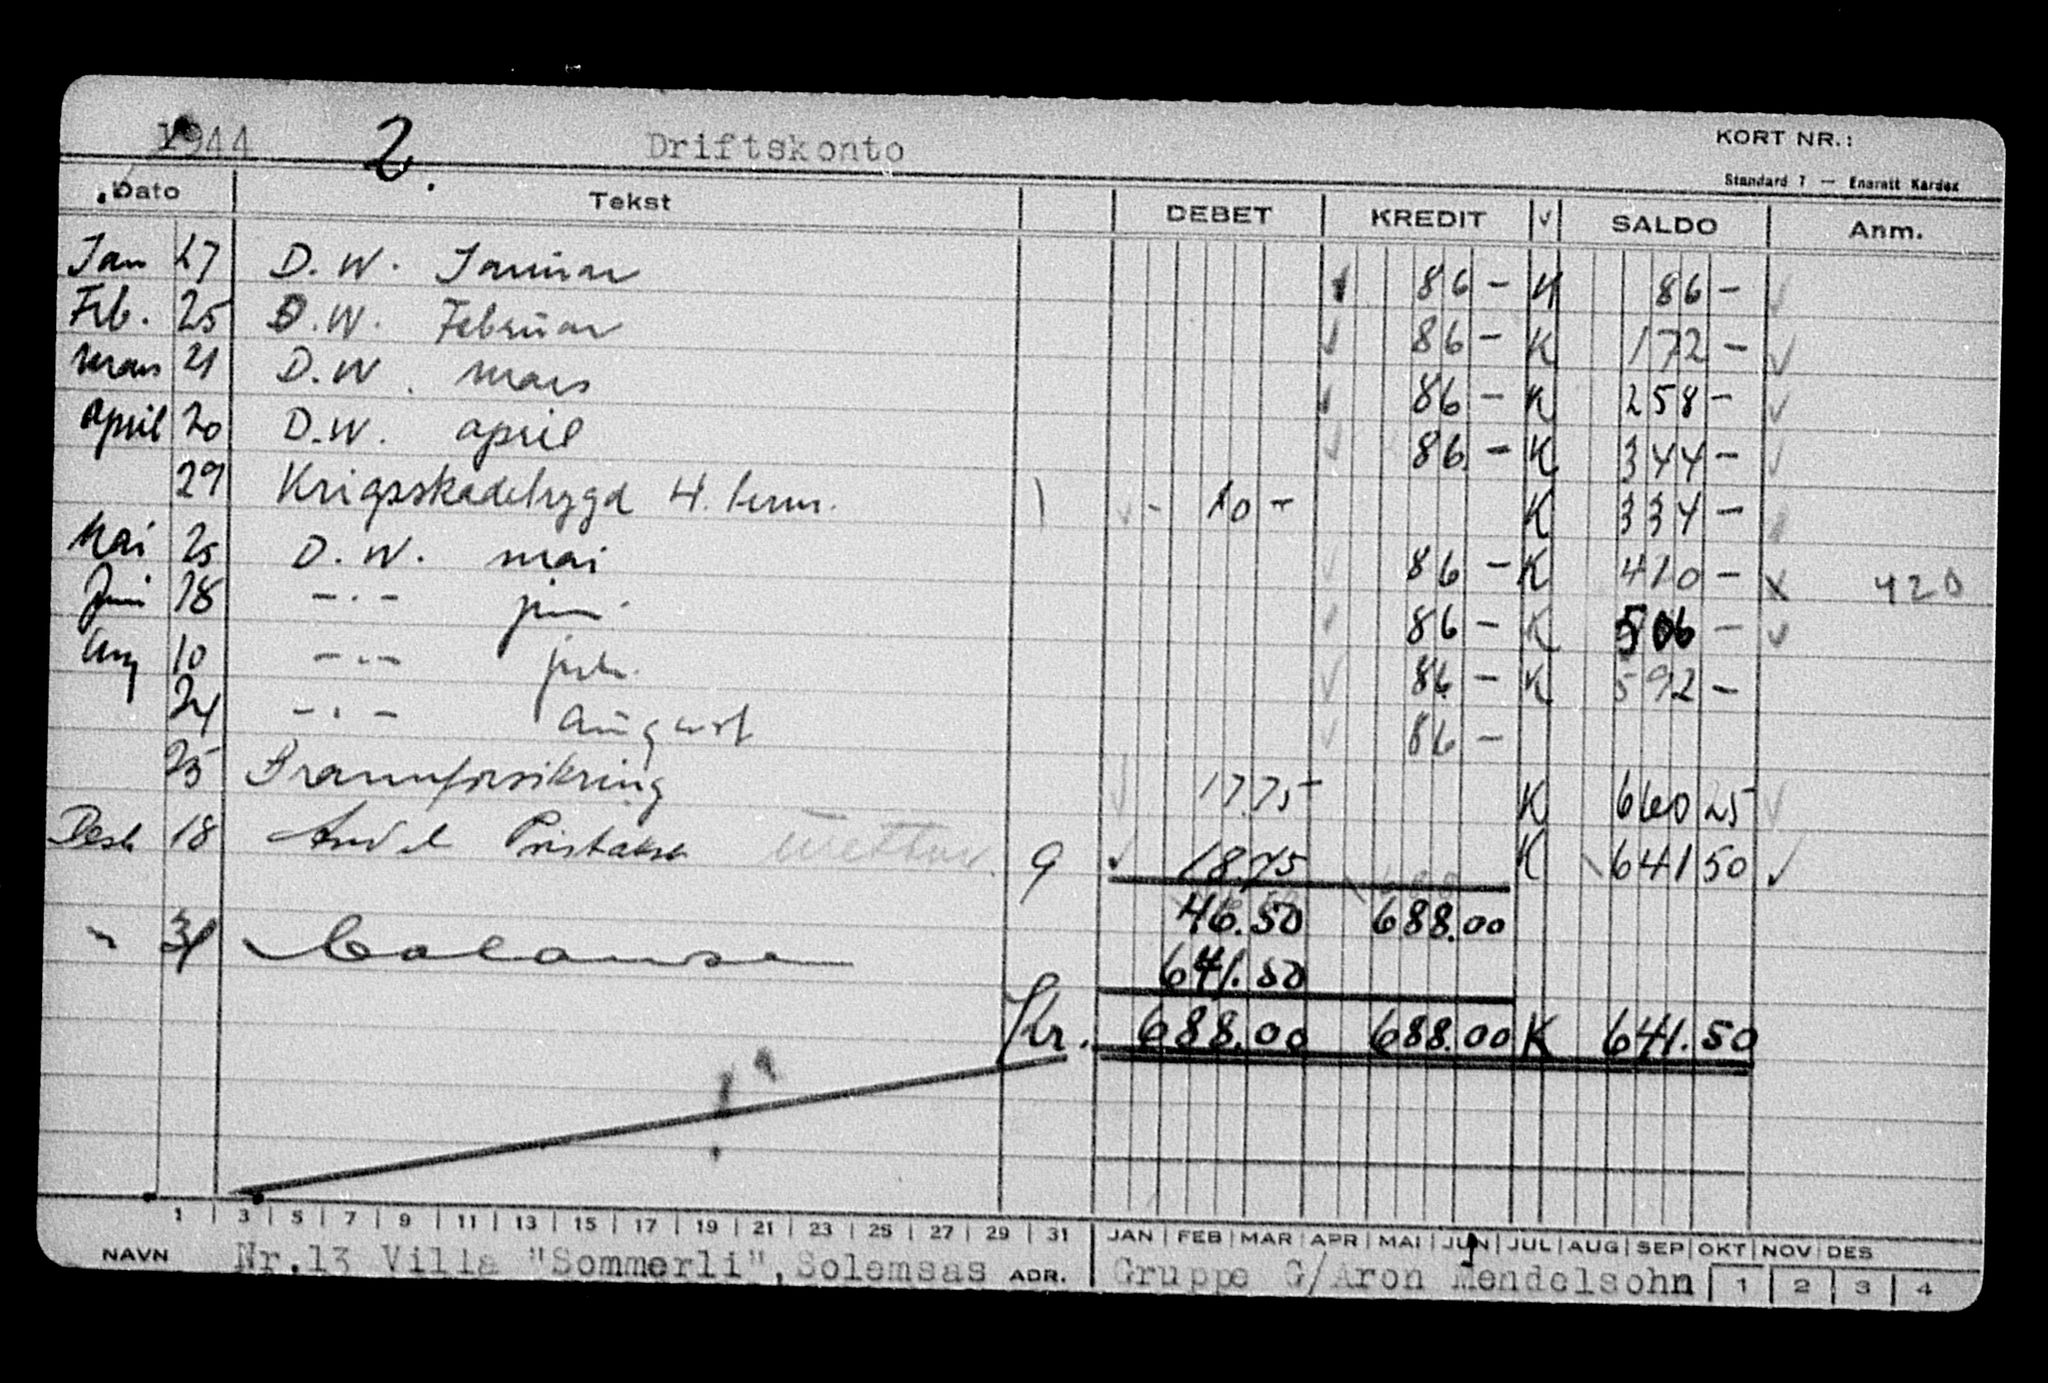 1944 2. Driftskonto KORT NR.:
Standard 7 — Enerett Kardex
Dato Tekst DEBET KREDIT √ SALDO Anm.
Jan 27 D.W. Januar 86 - K 86 -
Feb. 25 D.W. Februar 86 - K 172 -
mars 21 D.W. mars 86 - K 258 -
april 20 D.W. april 86 - K 344 -
29 Krigsskadetrygd 4. term. 10 - K 334 -
Mai 25 D.W. mai 86 - K 410 - x 420
Juni 18 -.- juni 86 - K 506 -
Aug 10 -.- juli 86 - K 592 -
24 -.- august 86 -
25 Brannforsikring 17.75 - K 660 25
Des 18 Andel Pristakst 9 18.75 K 641 50
46.50 688.00
" 31 balanse 641.50
Kr. 688.00 688.00 K 641.50
1 3 5 7 9 11 13 15 17 19 21 23 25 27 29 31 JAN FEB MAR APR MAI JUN JUL AUG SEP OKT NOV DES
NAVN Nr.13 Villa "Sommerli", Solemsås ADR. Gruppe G/Aron Mendelsohn 1 2 3 4